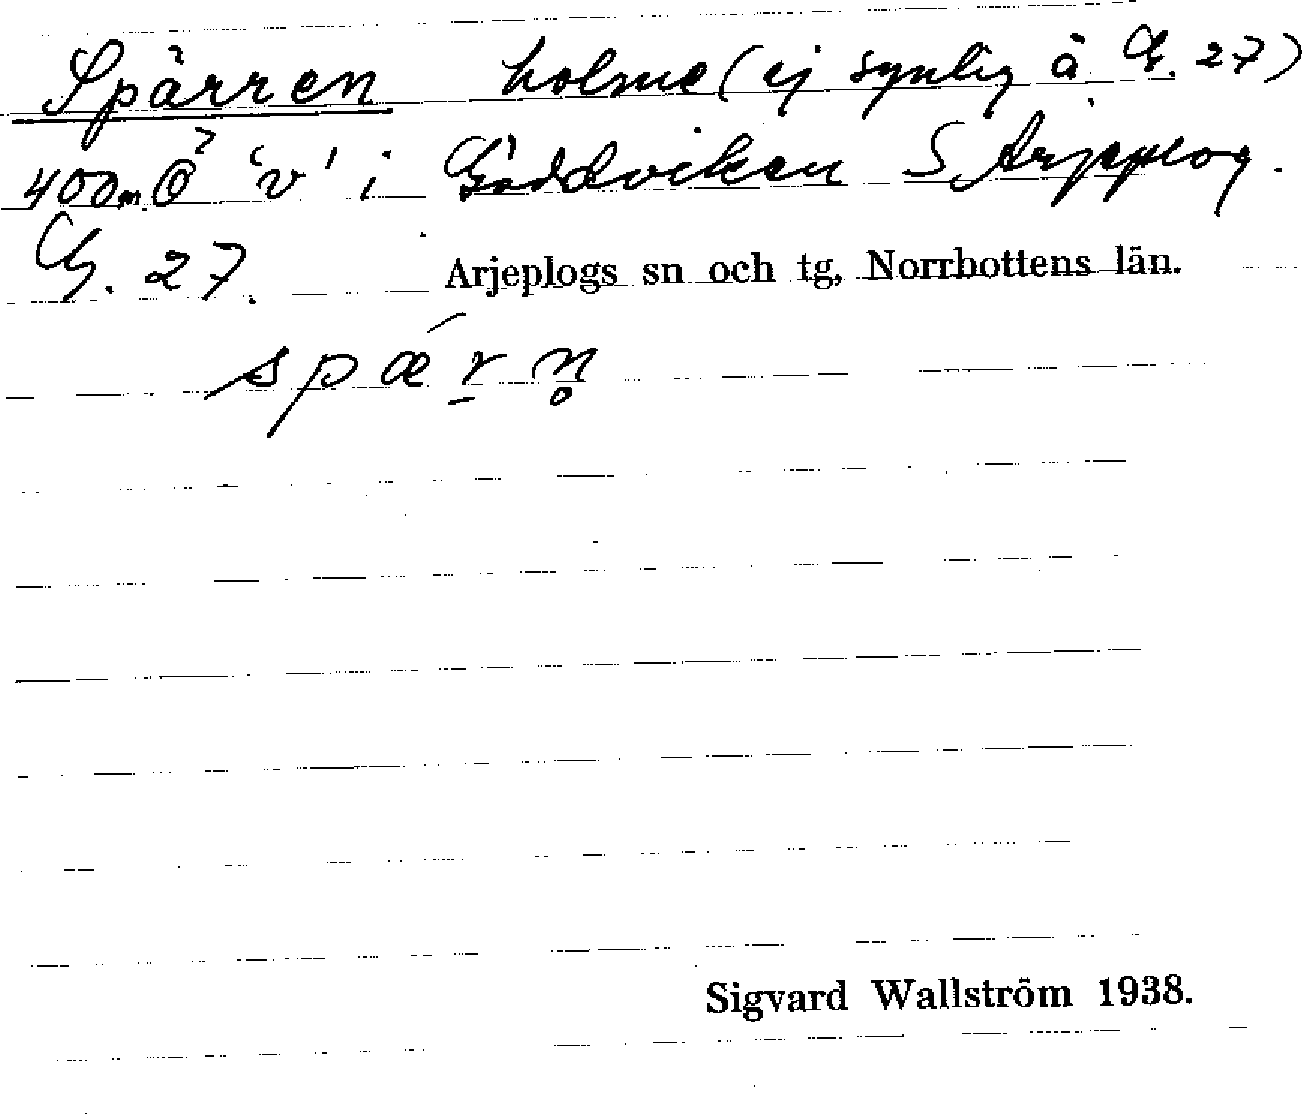 Spärren holme (ej synlig å G. 27)
400 m Ö 'v' i Gäddviken S Arjeplog.
G. 27. Arjeplogs sn och tg, Norrbottens län.
spǽr̲n̥
Sigvard Wallström 1938.